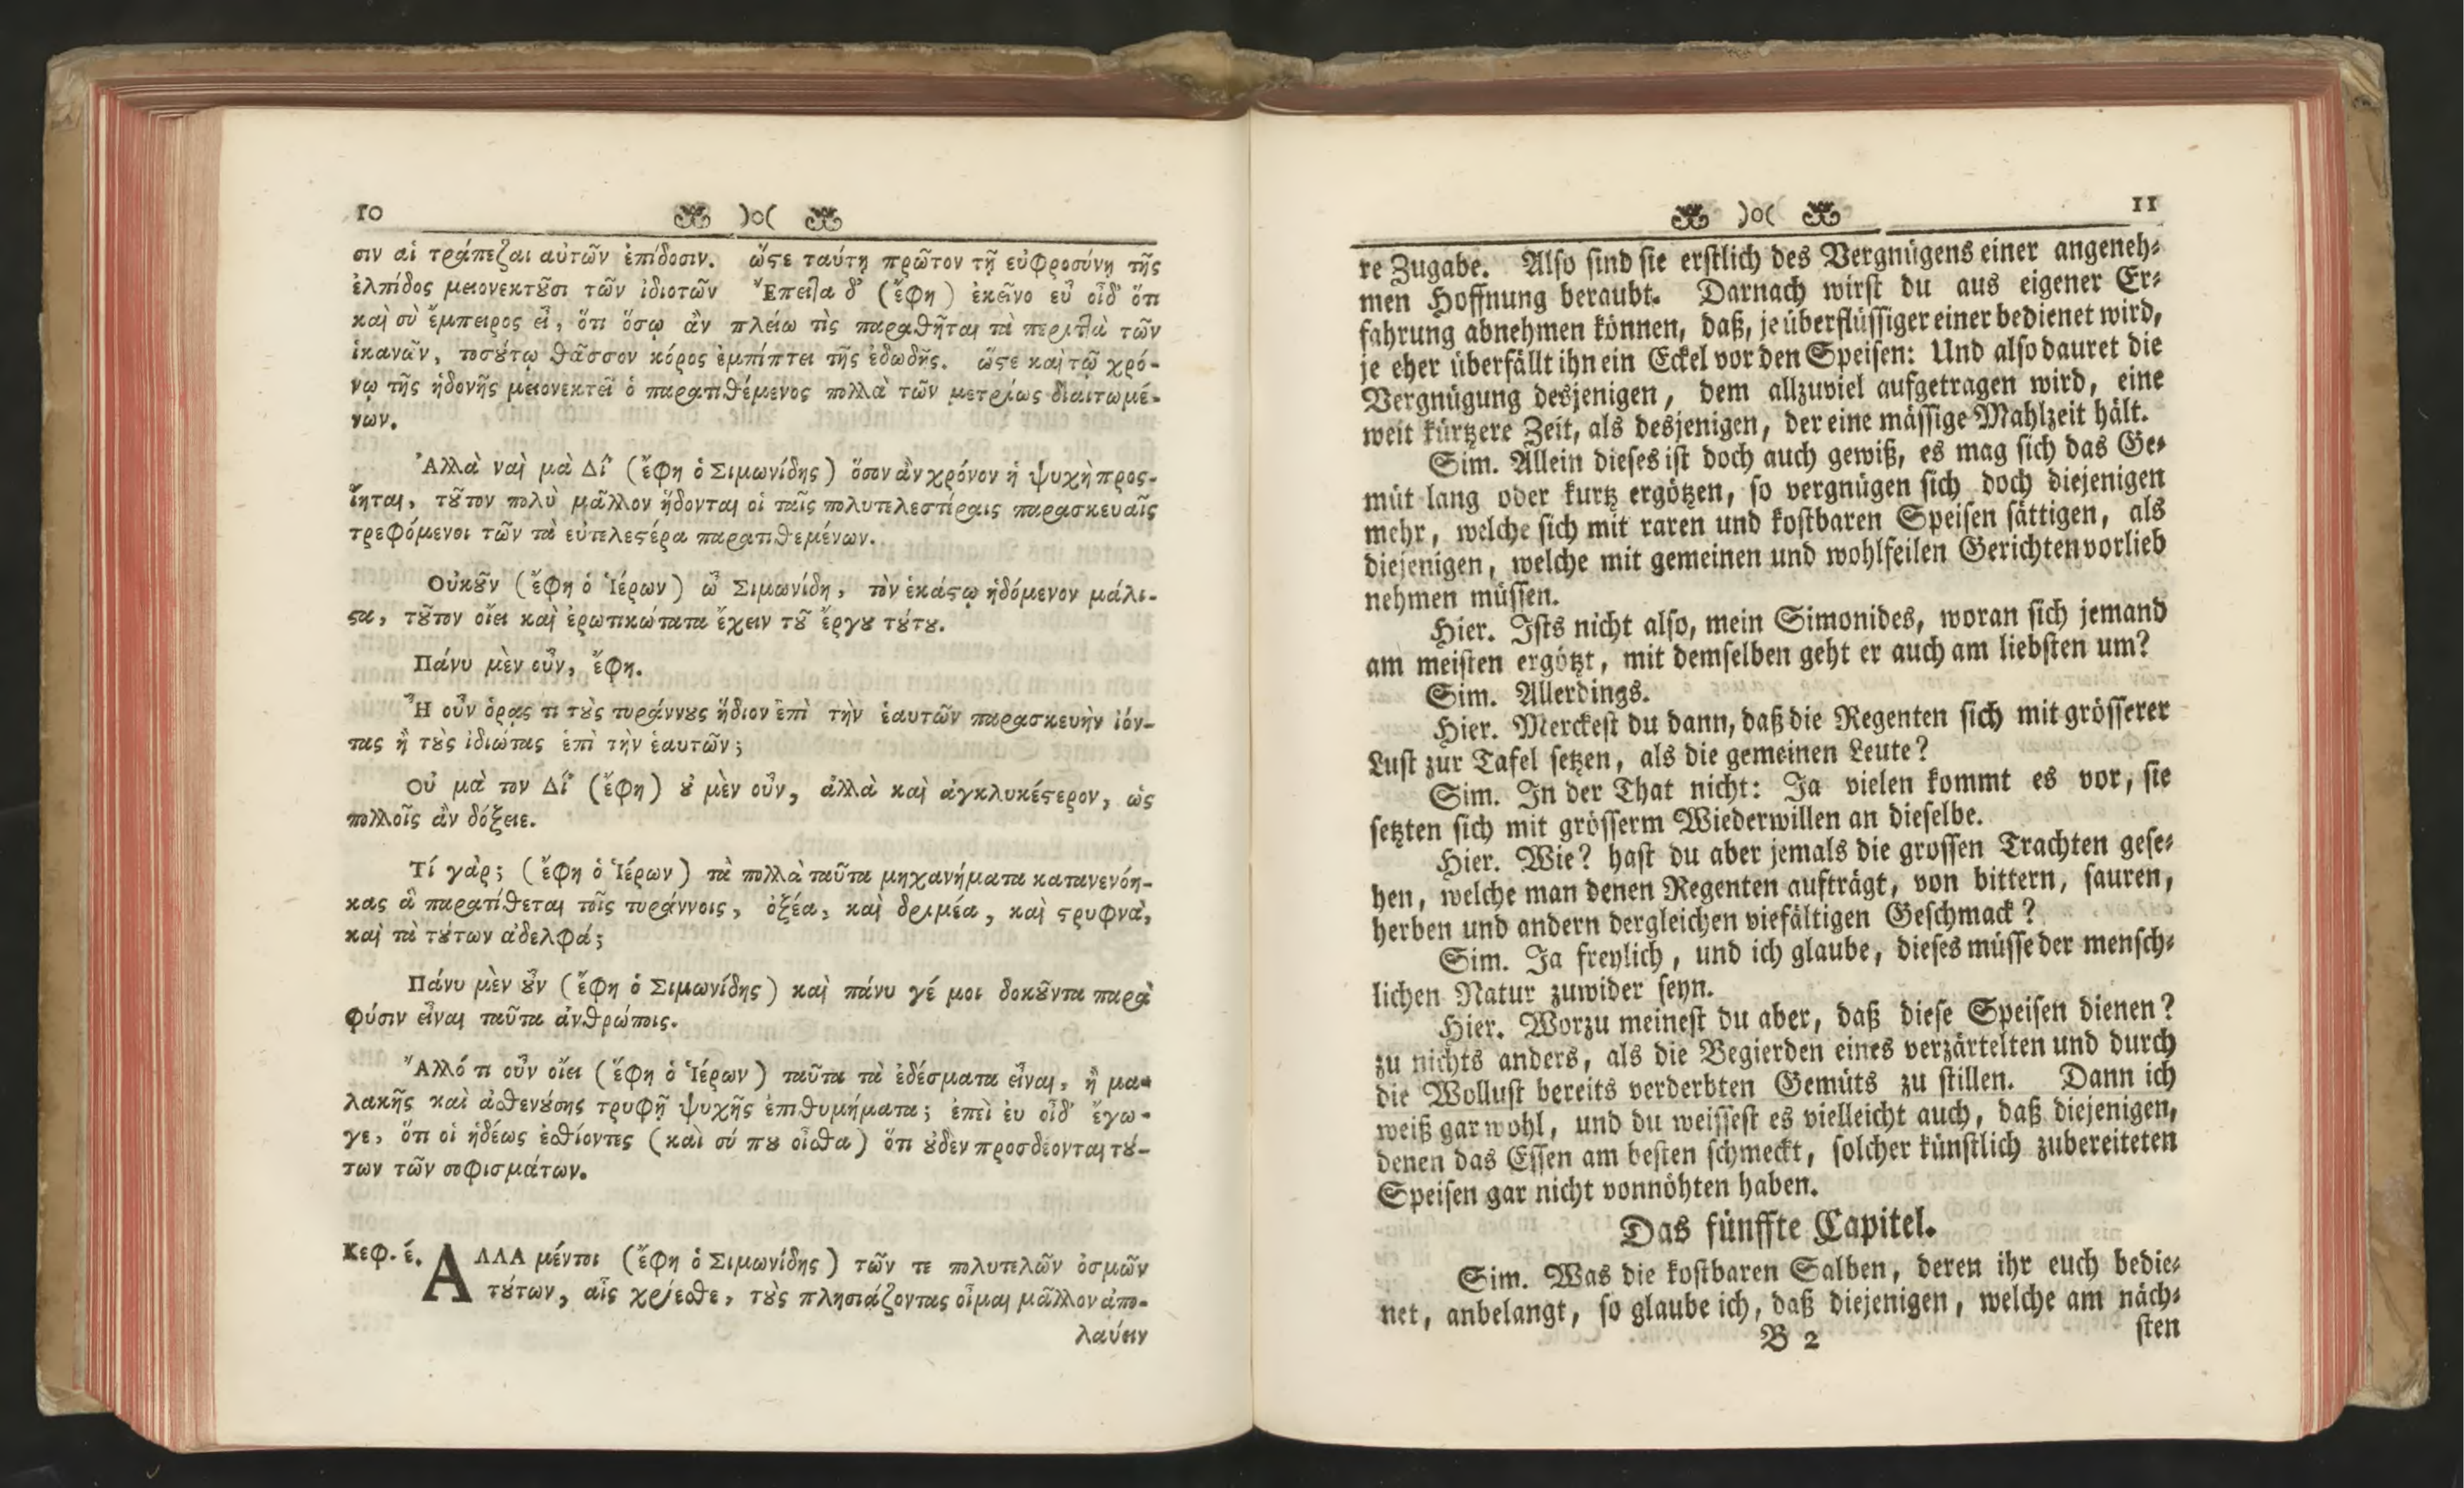 10
σιν αἱ τράπεζαι αὐτῶν ἐπίδοσιν. ὥϛε ταύτῃ πρῶτον τῇ εὐφροσύνῃ τῆς
ἐλπίδος μειονεκτȣ͂σι τῶν ἰδιοτῶν Ἔπειτα δ' (ἔφη) ἐκεῖνο εὖ οἶδ' ὅτι
καὶ σὺ ἔμπειρος εἶ, ὅτι ὅσῳ ἂν πλείω τὶς παραθῆται τὰ περιτὰ τῶν
ἱκανῶν, τοσȣ́τῳ θᾶσσον κόρος ἐμπίπτει τῆς ἐδωδῆς. ὥϛε καὶ τῷ χρό-
νῳ τῆς ἡδονῆς μειονεκτεῖ ὁ παρατιθέμενος πολλὰ τῶν μετρίως διαιτωμέ-
νων.
Ἀλλὰ ναὶ μὰ Δί' (ἔφη ὁ Σιμωνίδης) ὅσον ἂν χρόνον ἡ ψυχὴ προς-
ίηται, τȣ͂τον πολὺ μᾶλλον ἥδονται οἱ ταῖς πολυτελεστέραις παρασκευαῖς
τρεφόμενοι τῶν τὰ εὐτελεϛέρα παρατιθεμένων.
Οὐκȣ͂ν (ἔφη ὁ Ἱέρων) ὦ Σιμωνίδη, τὸν ἑκάϛῳ ἡδόμενον μάλι-
ϛα, τȣ͂τον οἴει καὶ ἐρωτικώτατα ἔχειν τȣ͂ ἔργȣ τȣ́τȣ.
Πάνυ μὲν οὖν, ἔφη.
Ἦ οὖν ὁρᾷς τι τȣ̀ς τυράννȣς ἥδιον ἐπὶ τὴν ἑαυτῶν παρασκευὴν ἰόν-
τας ἢ τȣ̀ς ἰδιώτας ἐπὶ τὴν ἑαυτῶν;
Οὐ μὰ τον Δί' (ἔφη) ȣ̓ μὲν οὖν, ἀλλὰ καὶ ἀγκλυκέϛερον, ὡς
πολλοῖς ἂν δόξειε.
Τί γὰρ; (ἔφη ὁ Ἱέρων) τὰ πολλὰ ταῦτα μηχανήματα κατανενόη-
κας ἃ παρατίθεται τοῖς τυράννοις, ὀξέα, καὶ δριμέα, καὶ ϛρυφνὰ,
καὶ τὰ τȣ́των ἀδελφά;
Πάνυ μὲν ȣ̓͂ν (ἔφη ὁ Σιμωνίδης) καὶ πάνυ γέ μοι δοκȣ͂ντα παρὰ
φύσιν εἶναι ταῦτα ἀνθρώποις.
Ἄλλό τι οὖν οἴει (ἔφη ὁ Ἱέρων) ταῦτα τὰ ἐδέσματα εἶναι, ἢ μα-
λακῆς καὶ ἀσθενȣ́σης τρυφῇ ψυχῆς ἐπιθυμήματα; ἐπεὶ ἐυ οἶδ' ἔγω-
γε, ὅτι οἱ ἡδέως ἐσθίοντες (καὶ σύ πȣ οἶσθα) ὅτι ȣ̓δὲν προσδέονται τȣ́-
των τῶν σοφισμάτων.
Κεφ. έ. ΑΛΛΑ μέντοι (ἔφη ὁ Σιμωνίδης) τῶν τε πολυτελῶν ὀσμῶν
τȣ́των, αἷς χρίεσθε, τȣ̀ς πλησιάζοντας οἶμαι μᾶλλον ἀπο-
λαύειν
11
re Zugabe. Also sind sie erstlich des Vergnügens einer angeneh-
men Hoffnung beraubt. Darnach wirst du aus eigener Er-
fahrung abnehmen können, daß, je überflüssiger einer bedienet wird,
je eher überfällt ihn ein Eckel vor den Speisen: Und also dauret die
Vergnügung desjenigen, dem allzuviel aufgetragen wird, eine
weit kürtzere Zeit, als desjenigen, der eine mässige Mahlzeit hält.
Sim. Allein dieses ist doch auch gewiß, es mag sich das Ge-
müt lang oder kurtz ergötzen, so vergnügen sich doch diejenigen
mehr, welche sich mit raren und kostbaren Speisen sättigen, als
diejenigen, welche mit gemeinen und wohlfeilen Gerichten vorlieb
nehmen müssen.
Hier. Ists nicht also, mein Simonides, woran sich jemand
am meisten ergötzt, mit demselben geht er auch am liebsten um?
Sim. Allerdings.
Hier. Merckest du dann, daß die Regenten sich mit grösserer
Lust zur Tafel setzen, als die gemeinen Leute?
Sim. In der That nicht: Ja vielen kommt es vor, sie
setzten sich mit grösserm Wiederwillen an dieselbe.
Hier. Wie? hast du aber jemals die grossen Trachten gese-
hen, welche man denen Regenten aufträgt, von bittern, sauren,
herben und andern dergleichen viefältigen Geschmack?
Sim. Ja freylich, und ich glaube, dieses müsse der mensch-
lichen Natur zuwider seyn.
Hier. Worzu meinest du aber, daß diese Speisen dienen?
zu nichts anders, als die Begierden eines verzärtelten und durch
die Wollust bereits verderbten Gemüts zu stillen. Dann ich
weiß gar wohl, und du weissest es vielleicht auch, daß diejenigen,
denen das Essen am besten schmeckt, solcher künstlich zubereiteten
Speisen gar nicht vonnöhten haben.
Das fünffte Capitel.
Sim. Was die kostbaren Salben, deren ihr euch bedie-
net, anbelangt, so glaube ich, daß diejenigen, welche am näch-
B 2
sten